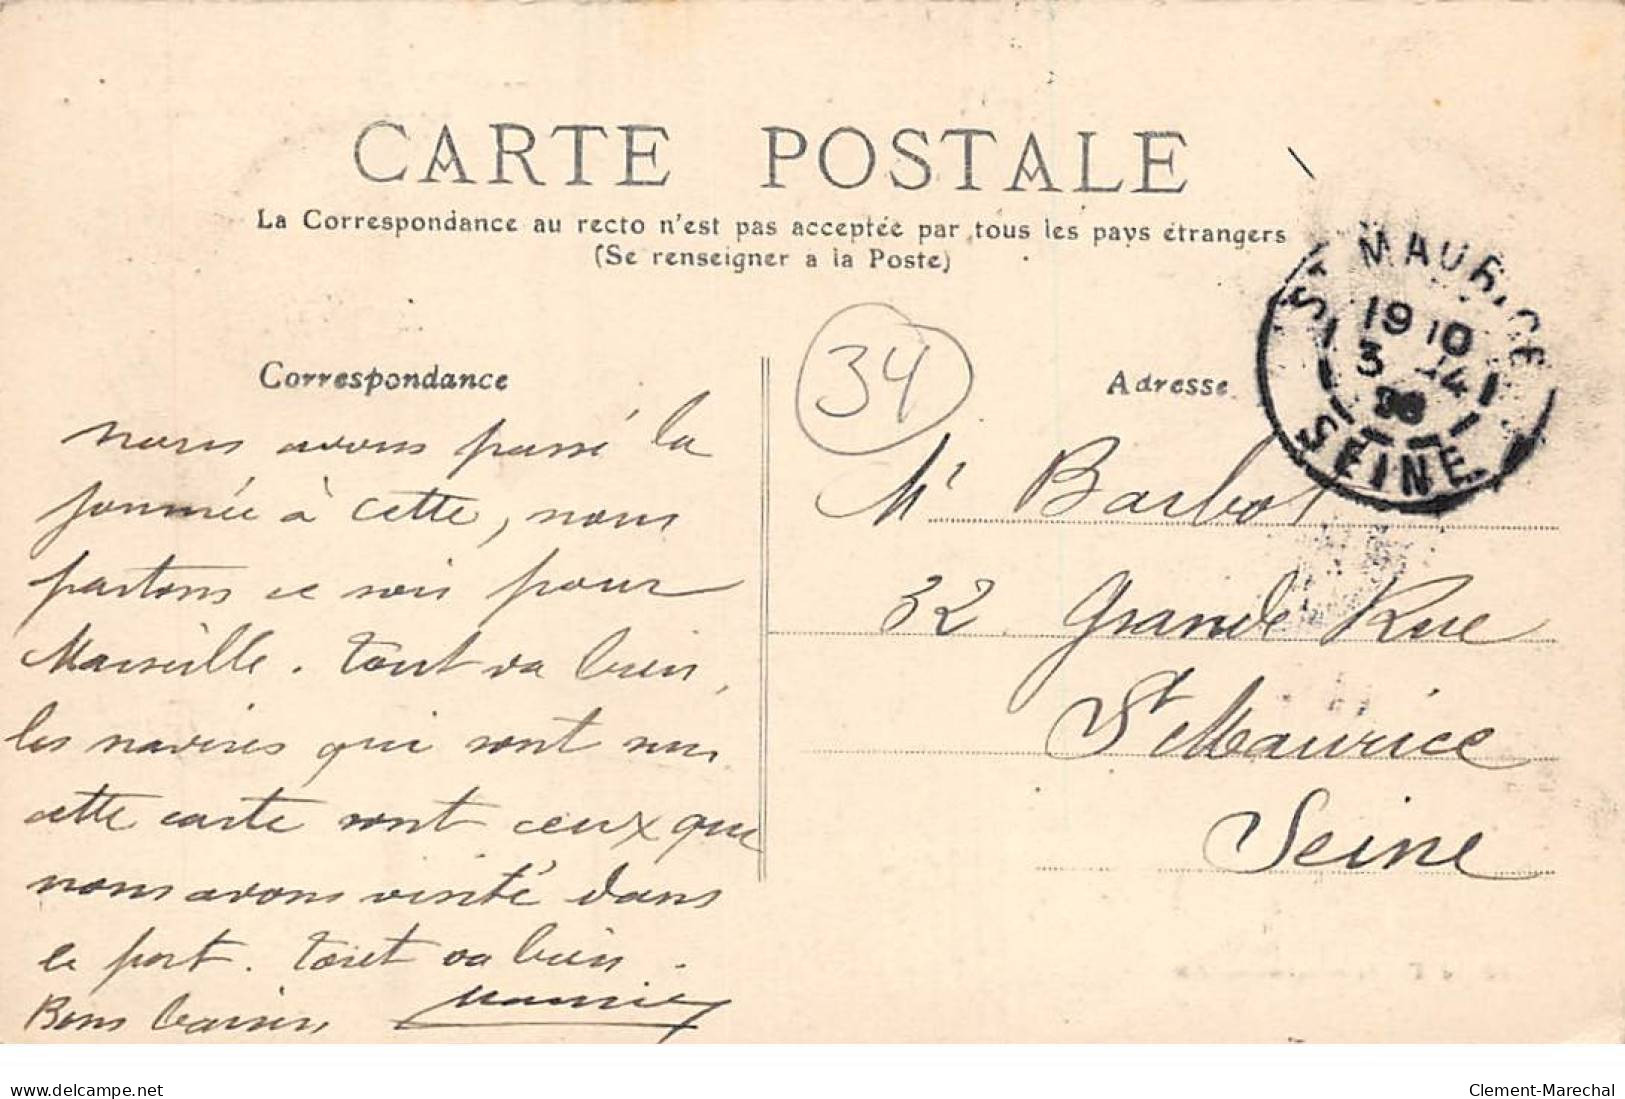 CARTE POSTALE
La Correspondance au recto n'est pas acceptée par tous les pays étrangers
(Se renseigner a la Poste)
ST MAURICE
19 10
3 -14
SEINE
34
Correspondance
nous avons passé la
journée à Cette, nous
partons ce soir pour
Marseille. tout va bien,
les navires qui sont sur
cette carte sont ceux que
nous avons visité dans
le port. tout va bien.
Bons baisers
Adresse
Mr Barbot
32 Grande Rue
St Maurice
Seine
www.delcampe.net
Clement-Marechal